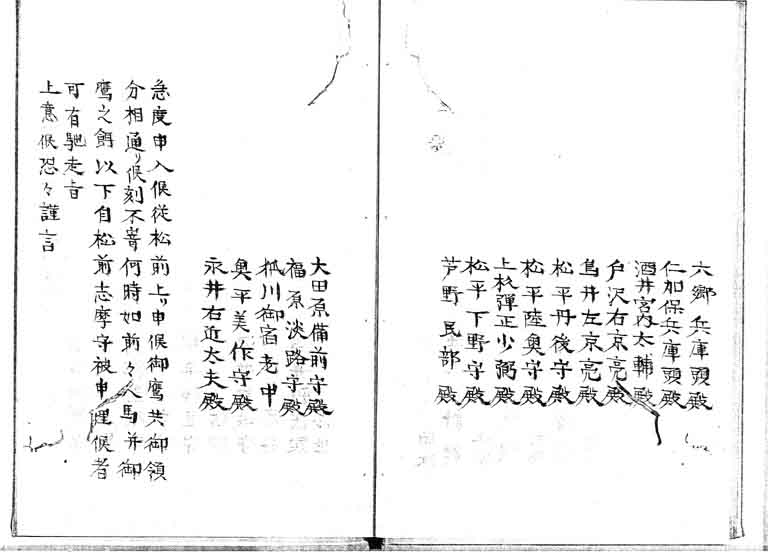 六郷兵庫頭殿
仁加保兵庫頭殿
酒井宮内太輔殿
戸沢右京亮殿
鳥井左京亮殿
松平丹後守殿
松平陸奥守殿
上杦弾正少弼殿
松平下野守殿
芦野民部殿
大田原備前守殿
福原淡路守殿
狐川御宿老中
奥平美作守殿
永井右近太夫殿
急度申入候従松前上リ申候御鷹共御領
分相通リ候刻不寄何時如前々人馬并御
鷹之餌以下自松前志摩守被申理候者
可有馳走旨
上意候恐々謹言